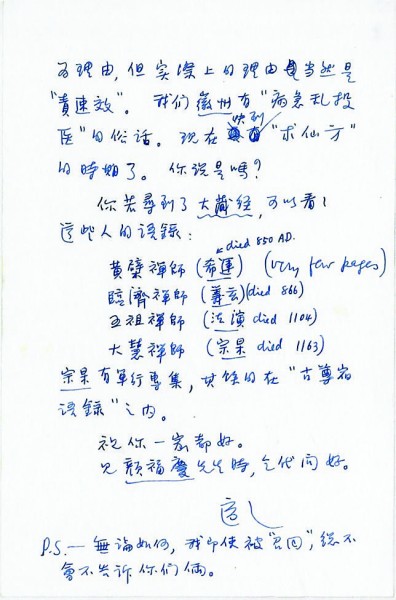 为理由,但实際上的理由當然是
"責速效"。我们徽州有"病急乱投
医"的俗話。現在快到"求仙方"
的時期了。你说是嗎?
你若尋到了大藏经,可以看看
這些人的语録:
died 850 AD.
黄蘗禪師(希運) (very few pages)
臨濟禪師(義玄)(died 866)
五祖禪師(法演 died 1104)
大慧禪師(宗杲 died 1163)
宗杲有單行專集,其餘的在"古尊宿
语録"之内。
祝你一家都好。
見顏福慶先生時,乞代问好。
適之
P.S.—無論如何,我即使被"召回",總不
會不告訴你们倆。